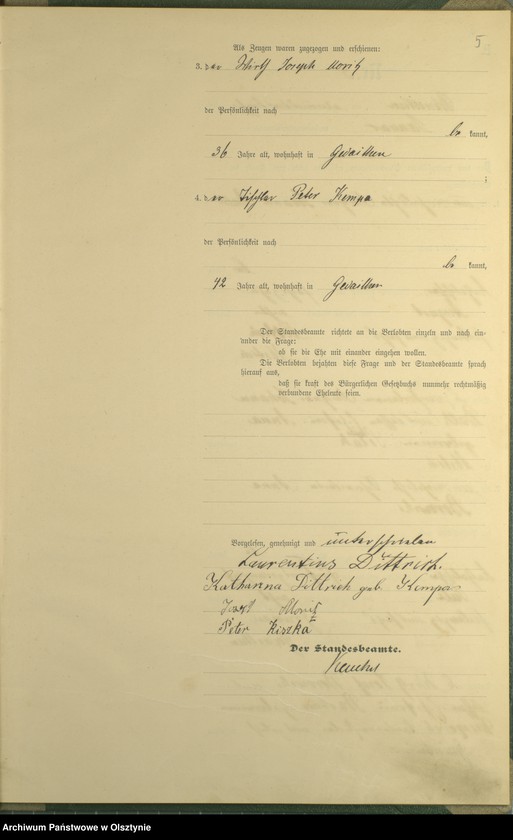 5
Als Zeugen waren zugezogen und erschienen:
3. der Wirth Joseph Moritz
der Persönlichkeit nach
be kannt,
36 Jahre alt, wohnhaft in Gedaithen
;
4. der Tischler Peter Kempa
der Persönlichkeit nach
be kannt,
42 Jahre alt, wohnhaft in Gedaithen
Der Standesbeamte richtete an die Verlobten einzeln und nach ein-
ander die Frage:
ob sie die Ehe mit einander eingehen wollen.
Die Verlobten bejahten diese Frage und der Standesbeamte sprach
hierauf aus,
daß sie kraft des Bürgerlichen Gesetzbuchs nunmehr rechtmäßig
verbundene Eheleute seien.
Vorgelesen, genehmigt und unterschrieben
Laurentius Dittrich.
Katharina Dittrich geb. Kempa
Moritz
Peter
Der Standesbeamte.
Archiwum Państwowe w Olsztynie